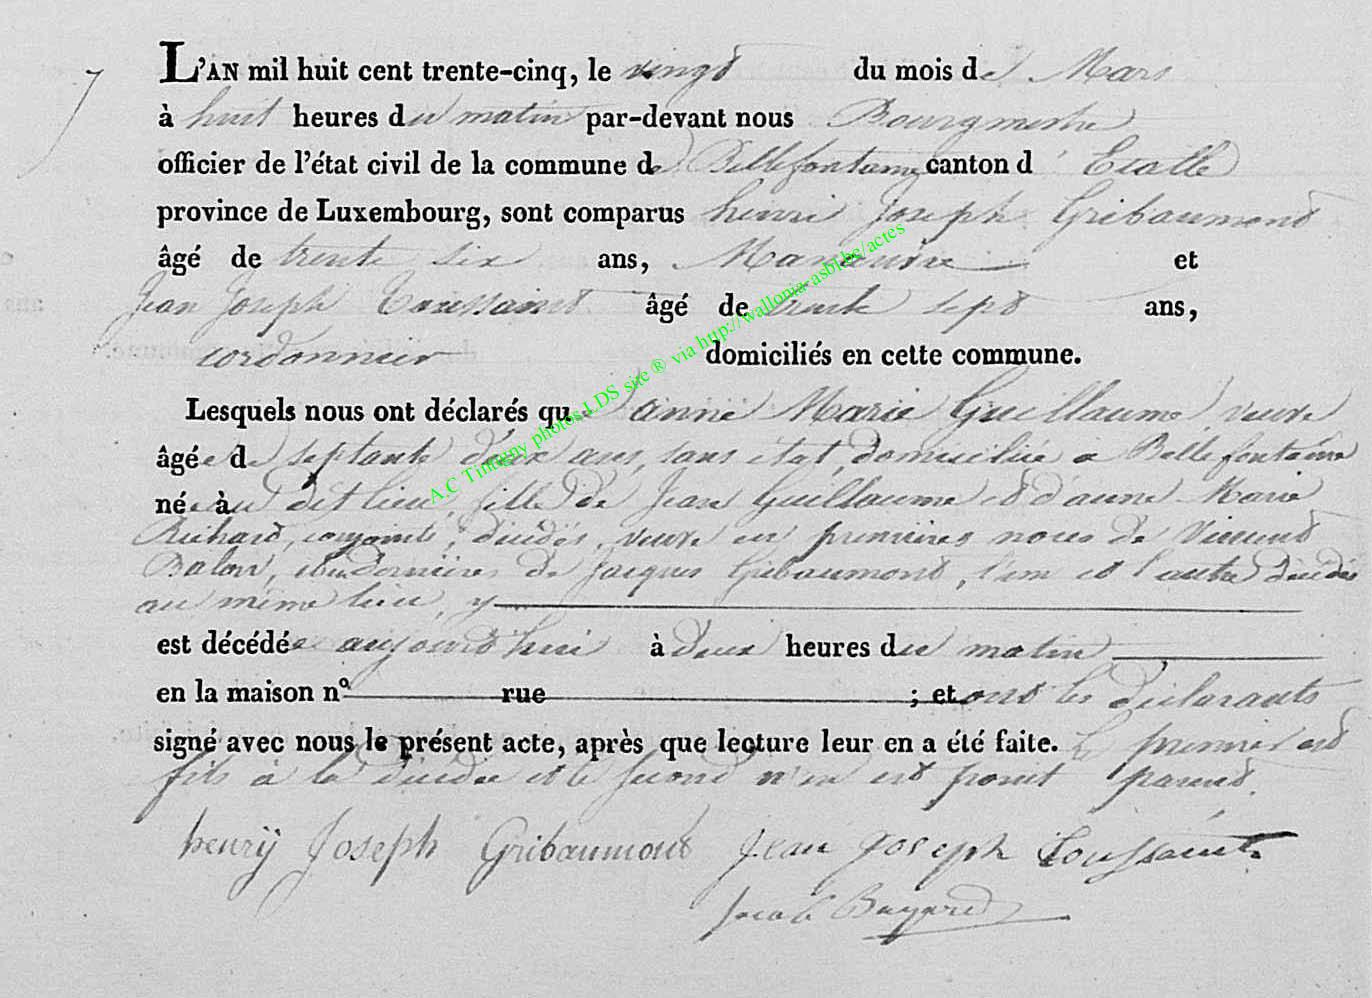 7
L'AN mil huit cent trente-cinq, le vingt du mois de Mars
à huit heures du matin par-devant nous Bourgmestre
officier de l'état civil de la commune de Bellefontaine canton d'Etalle
province de Luxembourg, sont comparus henri Joseph Gribaumont
âgé de trente six ans, Manœuvre et
Jean Joseph Toussaint âgé de trente sept ans,
cordonnier domiciliés en cette commune.
Lesquels nous ont déclarés que anne Marie Guillaume veuve
âgée de septante deux ans, sans état, domiciliée a Bellefontaine
née à au dit lieu, fille de Jean Guillaume et d'anne Marie
Richard, conjoints, décédés, veuve en premières noces de Vincent
Balon, et en dernières de Jacques Gribaumont, l'un et l'autre décédés
au même lieu, y
est décédée aujourd'hui à deux heures du matin
en la maison nº rue ; et ont les déclarants
signé avec nous le présent acte, après que lecture leur en a été faite. Le premier est
fils à la décédée et le second n'en est point parent.
henry Joseph Gribaumont Jean Joseph Toussaint
Jacob Bayard
A.C Tintigny photos LDS site ® via http://wallonia-asbl.be/actes